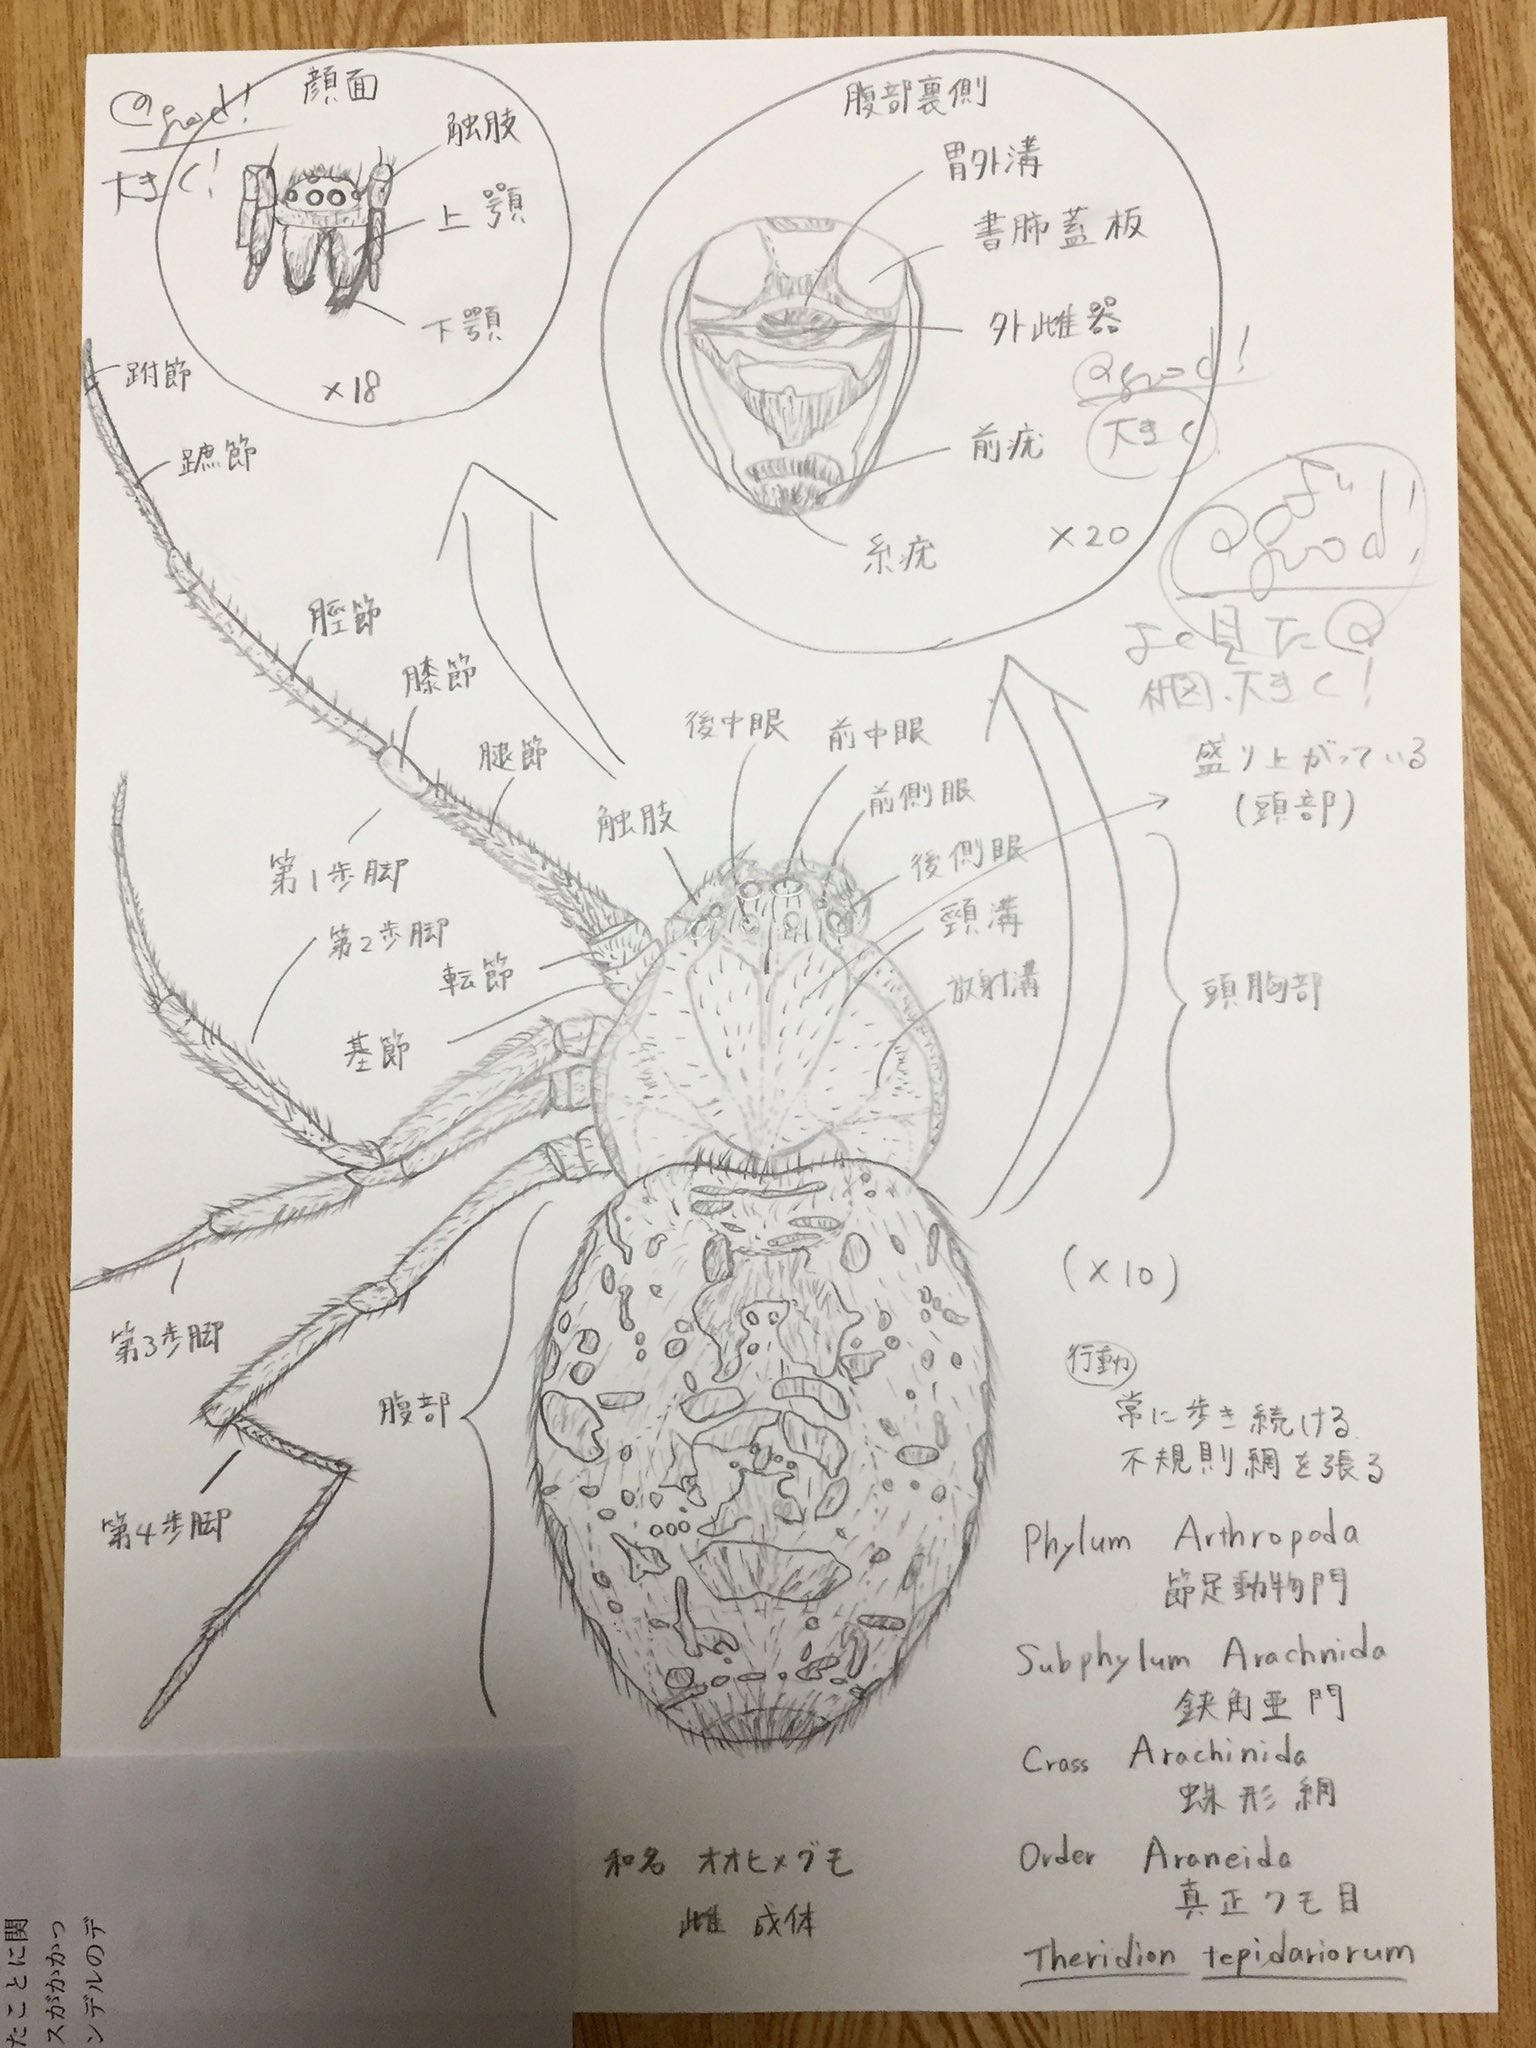 顔面
@good!
大きく!
触肢
上顎
下顎
×18
腹部裏側
胃外溝
書肺蓋板
外雌器
@good!
大きく
前疣
糸疣
×20
@good!
よく見た@
相図.大きく!
盛り上がっている
(頭部)
跗節
蹠節
脛節
膝節
腿節
第1歩脚
第2歩脚
転節
基節
第3歩脚
第4歩脚
触肢
後中眼
前中眼
前側眼
後側眼
頸溝
放射溝
頭胸部
腹部
(×10)
行動
常に歩き続ける
不規則網を張る
Phylum Arthropoda
節足動物門
Subphylum Arachnida
鋏角亜門
Crass Arachinida
蛛形綱
Order Araneida
真正クモ目
Theridion tepidariorum
和名 オオヒメグモ
雌 成体
たことに関
スがかかっ
ンデルのデ